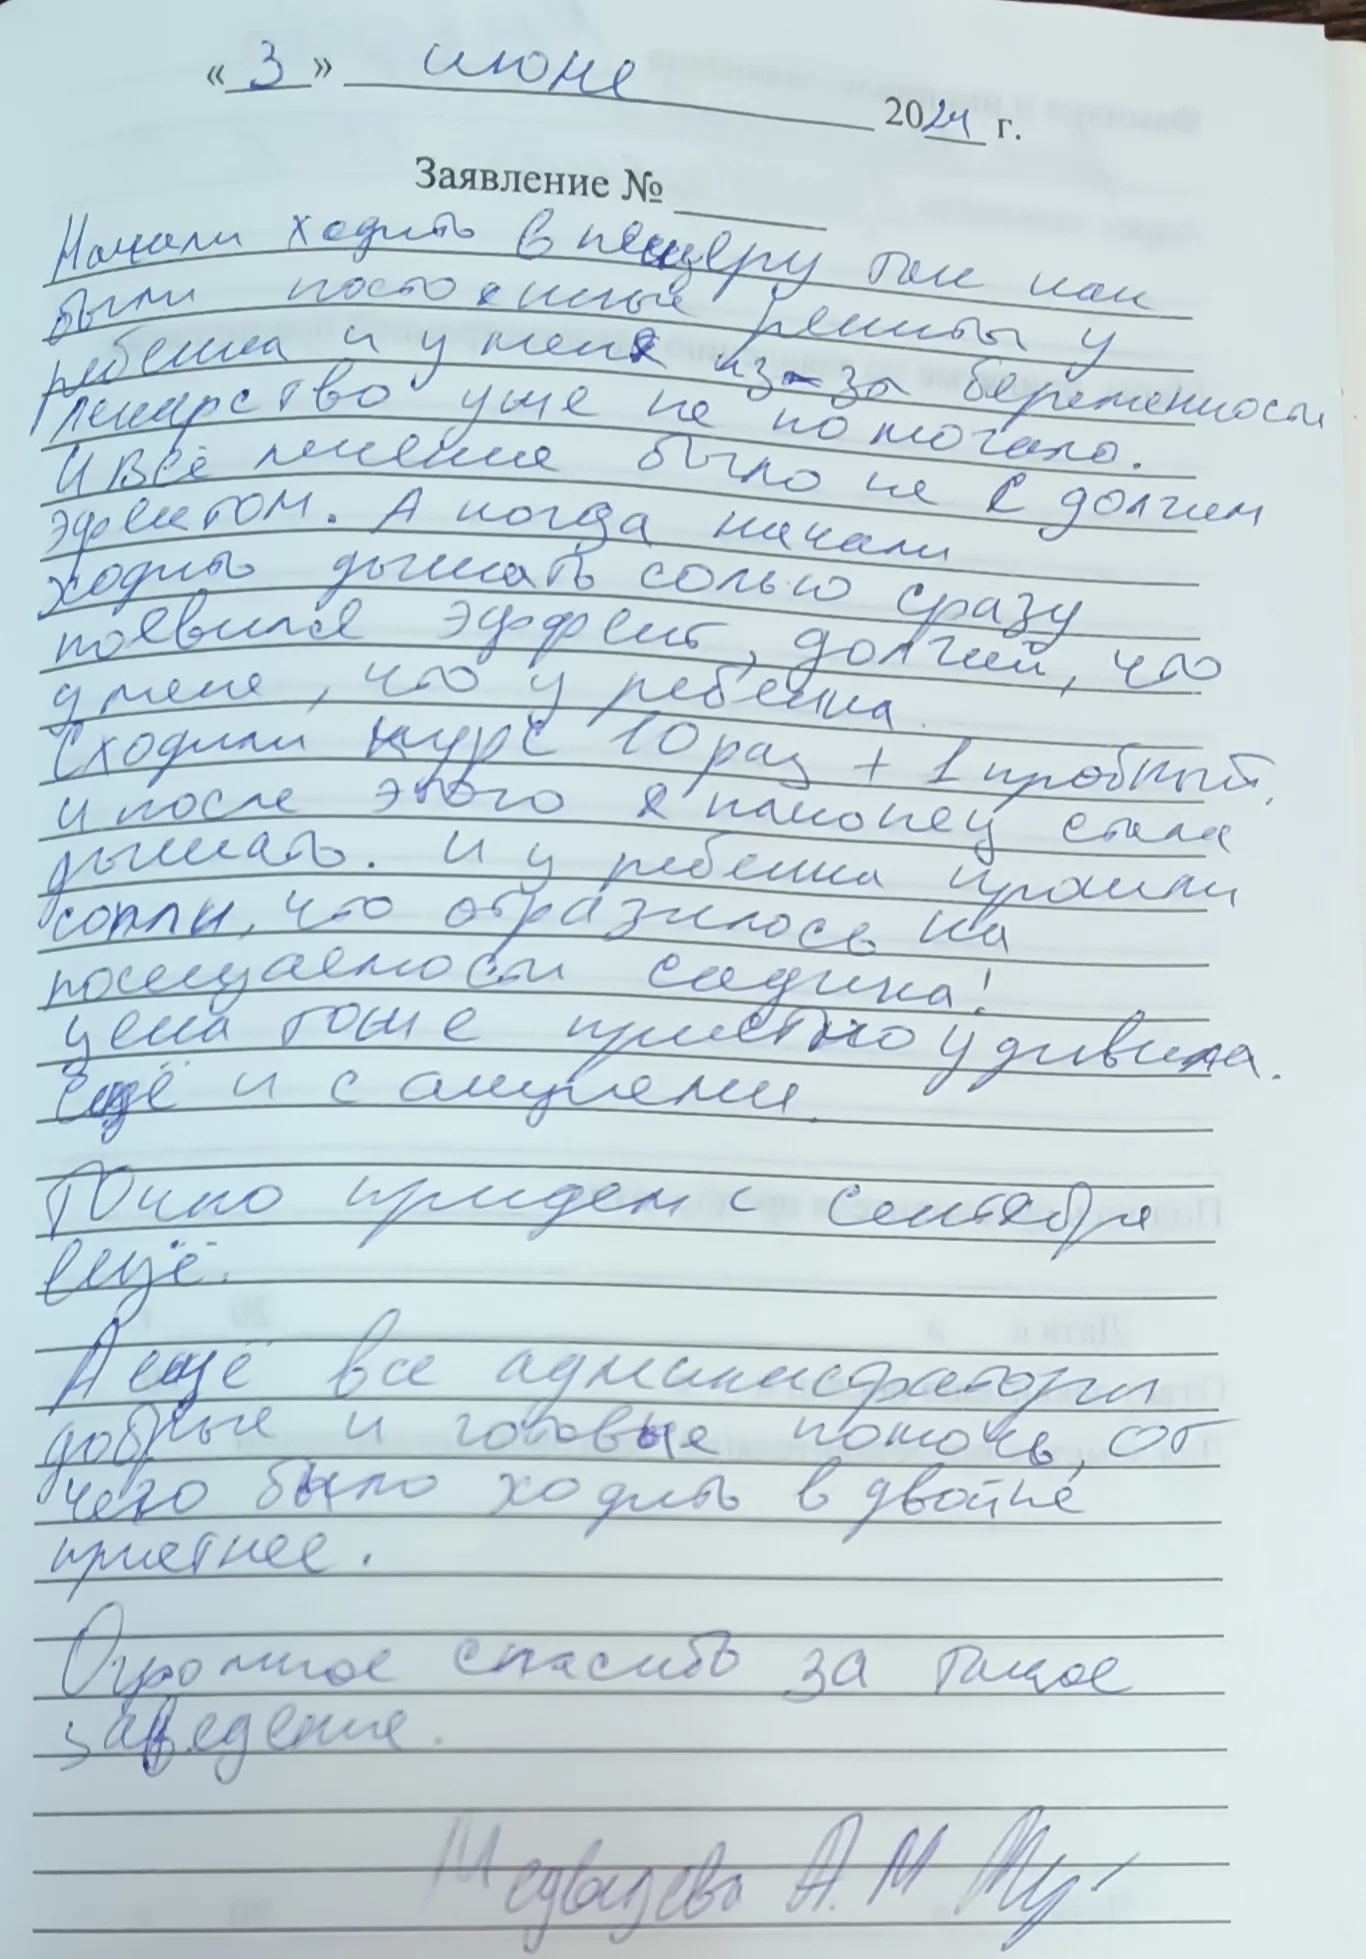 «3» июня 2024 г.
Заявление №
Начали ходить в пещеру так как
были постоянные рениты у
ребенка и у меня из-за беременности
лекарство уже не помогало.
И всё лечение было не с долгим
эфектом. А когда начали
ходить дышать солью сразу
появился эффект, долгий, что
у меня, что у ребенка.
Сходили курс 10 раз + 1 пробный,
и после этого я наконец стала
дышать. И у ребенка прошли
сопли, что отразилось на
посещаемости садика!
Цена тоже приятно удивила.
Ещё и с акциями.
Точно придем с сентября
ещё.
А ещё все администраторы
добрые и готовые помочь, от
чего было ходить в двойне
приятнее.
Огромное спасибо за такое
заведение.
А. М